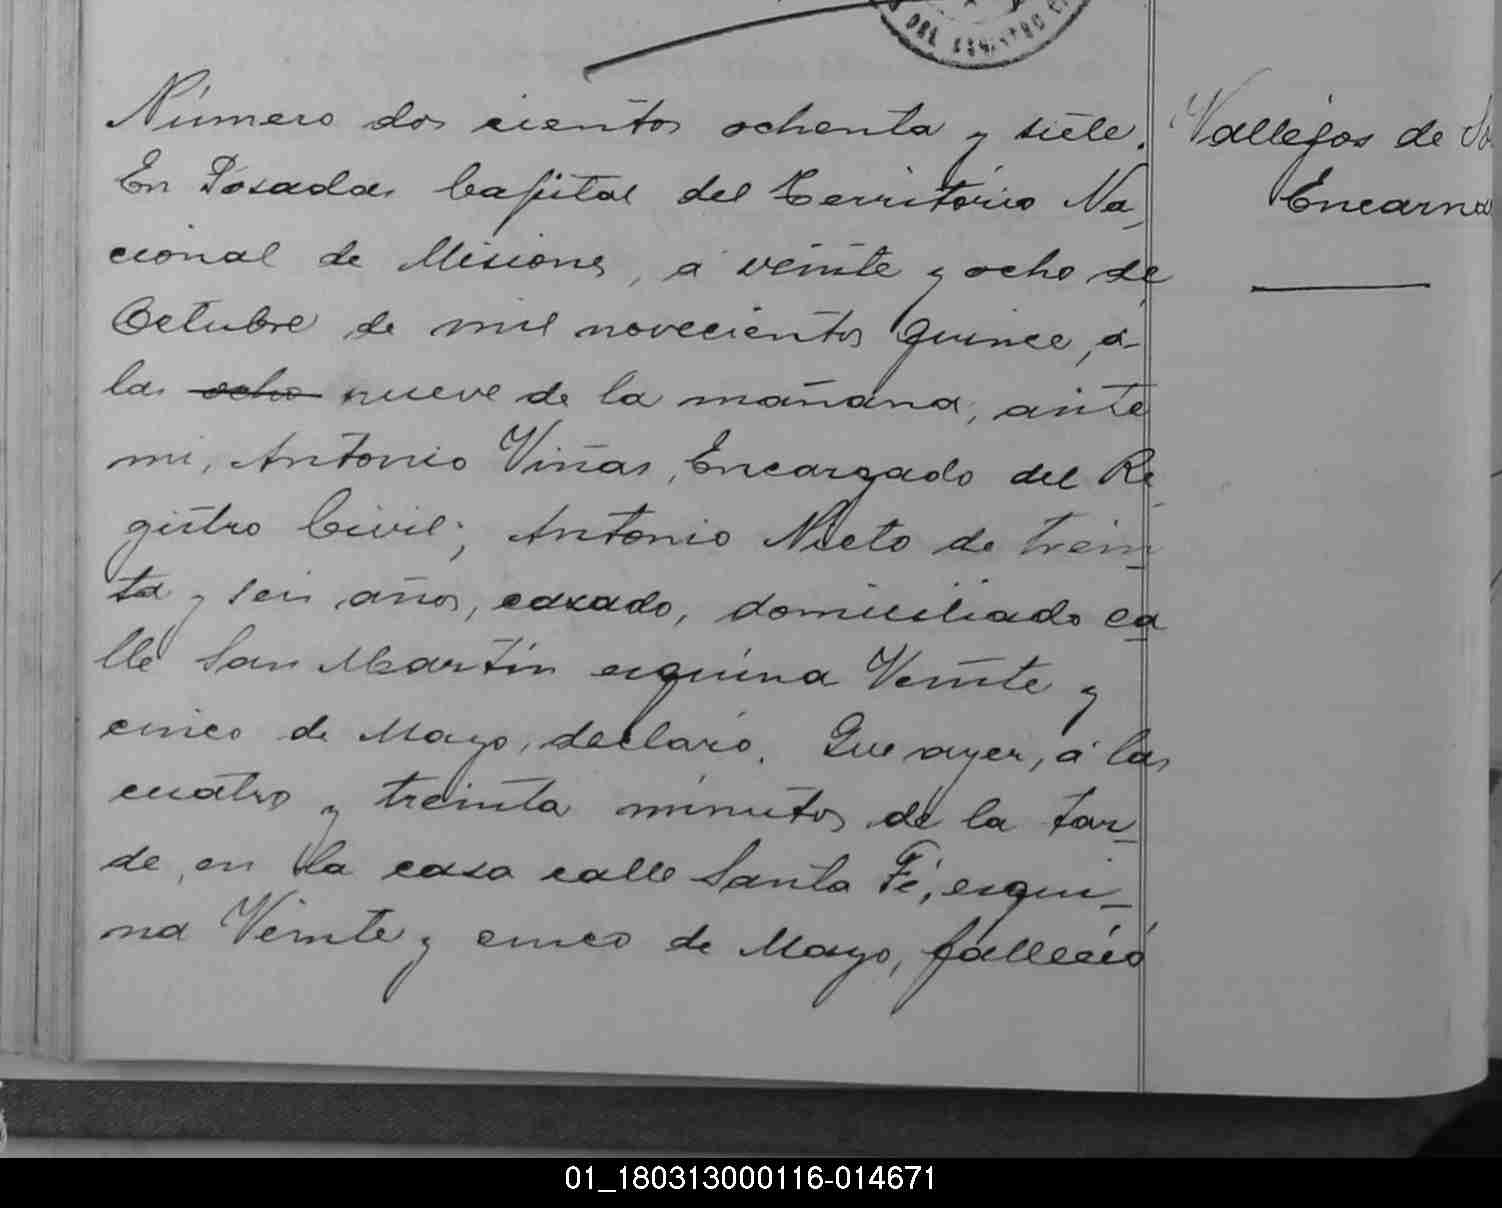 DEL REGISTRO CI
Número dos cientos ochenta y siete.
En Posadas Capital del Territorio Na_
cional de Misiones, á veinte y ocho de
Octubre de mil novecientos quince, á
las ocho nueve de la mañana, ante
mi, Antonio Viñas, Encargado del Re_
gistro Civil; Antonio Nieto de trein_
ta y seis años, casado, domiciliado ca
lle San Martín esquina Veinte y
cinco de Mayo, declaró. Que ayer, á las
cuatro y treinta minutos de la tar_
de, en la casa calle Santa Fé, esqui_
na Veinte y cinco de Mayo, falleció
Vallejos de
Encarna
01_180313000116-014671